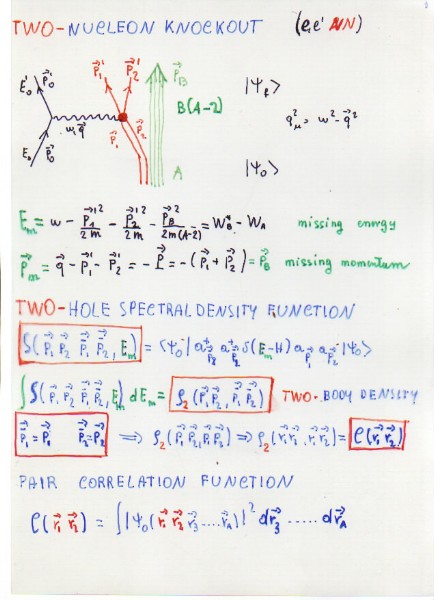 TWO-NUCLEON KNOCKOUT (e,e'NN)
E₀' p⃗₀' p⃗₁' p⃗₂' p⃗_B |Ψ_f⟩
B(A-2)
q_μ² = ω² - q⃗²
ω, q⃗
p⃗₁ p⃗₂
E₀ p⃗₀ A |Ψ₀⟩
E_m = ω - p⃗₁'²/2m - p⃗₂'²/2m - p⃗_B²/2m(A-2) = W_B* - W_A missing energy
p⃗_m = q⃗ - p⃗₁' - p⃗₂' = -P⃗ = -(p⃗₁ + p⃗₂) = p⃗_B missing momentum
TWO-HOLE SPECTRAL DENSITY FUNCTION
S(p⃗₁ p⃗₂ p̄⃗₁ p̄⃗₂, E_m) = ⟨Ψ₀| a⁺_p̄⃗₂ a⁺_p̄⃗₁ δ(E_m-H) a_p⃗₁ a_p⃗₂ |Ψ₀⟩
∫S(p⃗₁ p⃗₂ p̄⃗₁ p̄⃗₂, E_m) dE_m = ρ₂(p⃗₁p⃗₂, p̄⃗₁p̄⃗₂) TWO-BODY DENSITY
p̄⃗₁ = p⃗₁ p̄⃗₂ = p⃗₂ ⟹ ρ₂(p⃗₁p⃗₂, p⃗₁p⃗₂) ⟹ ρ₂(r⃗₁r⃗₂, r⃗₁r⃗₂) = ρ(r⃗₁r⃗₂)
PAIR CORRELATION FUNCTION
ρ(r⃗₁ r⃗₂) = ∫|Ψ₀(r⃗₁ r⃗₂ r⃗₃....r⃗_A)|² dr⃗₃ ..... dr⃗_A